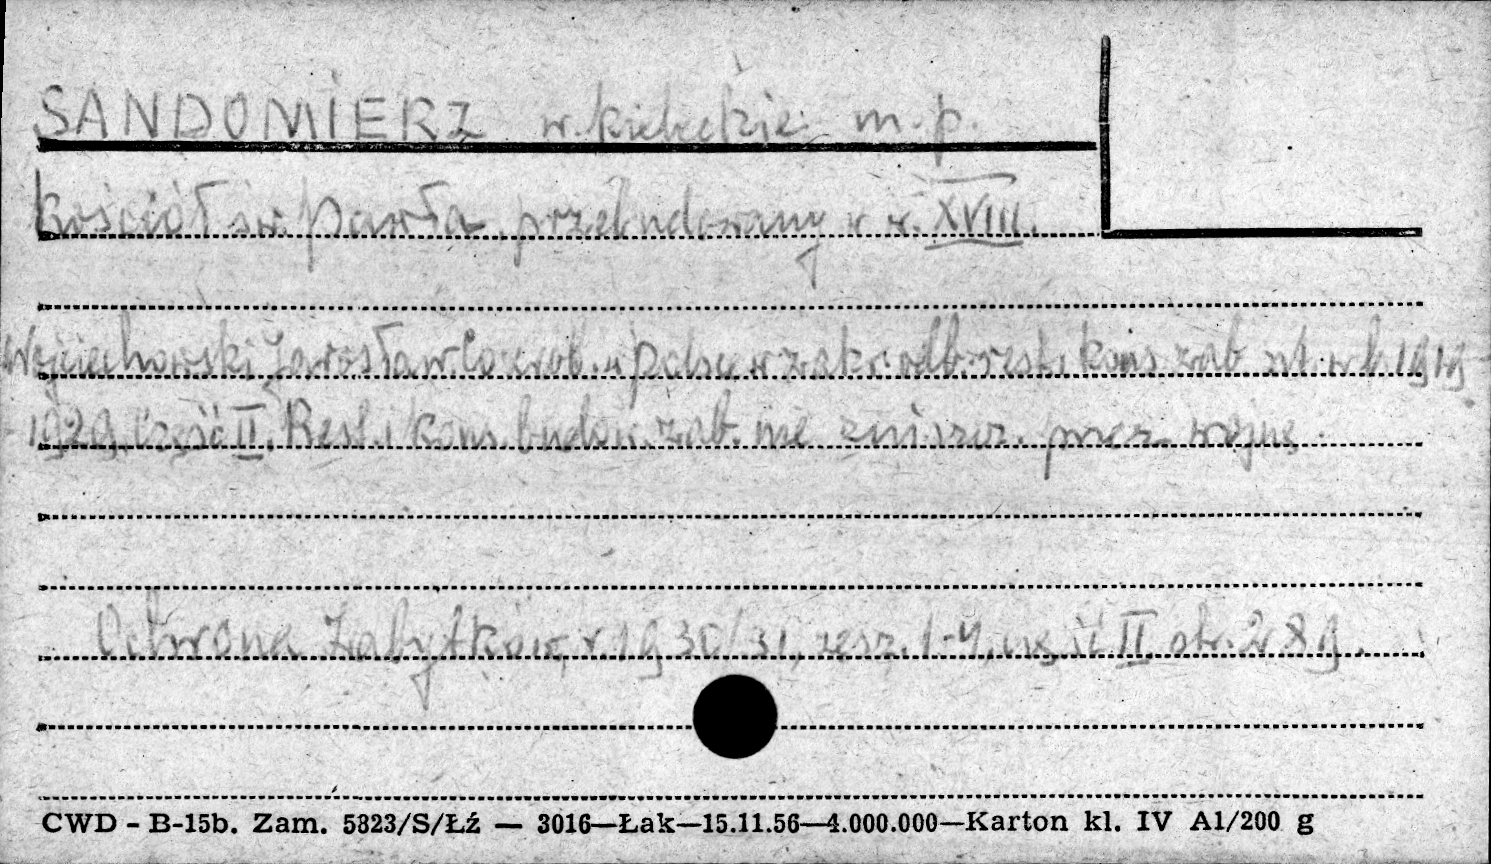 SANDOMIERZ w. kieleckie m. p.
Kościół św. Pawła, przebudowany w w. XVIII.
Wojciechowski Jarosław. Co zrob. w Polsce w zakr. odb. rest. i kons. zab. szt. w l. 1919-
-1929. Część II. Rest. i kons. budow. zab. nie zniszcz. przez wojnę.
Ochrona Zabytków, r. 1930/31, zesz. 1-4, część II str. 289.
CWD - B-15b. Zam. 5823/S/Łź — 3016—Łak—15.11.56—4.000.000—Karton kl. IV A1/200 g